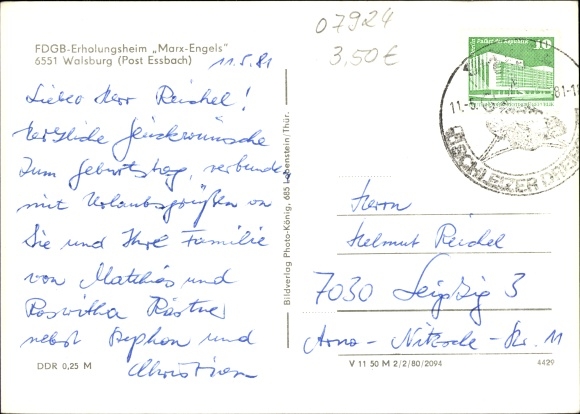 07924
3,50€
FDGB-Erholungsheim „Marx-Engels"
6551 Walsburg (Post Essbach)
11.5.81
Lieber Herr Reichel!
Herzliche Glückwünsche
zum Geburtstag, verbunden
mit Urlaubsgrüßen an
Sie und Ihre Familie
von Matthias und
Roswitha Kästner
nebst Stephan und
Christian
DDR 0,25 M
Bildverlag Photo-König, 685 Lobenstein/Thür.
Palast der Republik
10
11.-5.
81-1
SCHLEIZER
Herrn
Helmut Reichel
7030 Leipzig 3
Arno-Nitzsche-Str. 11
V 11 50 M 2/2/80/2094
4429